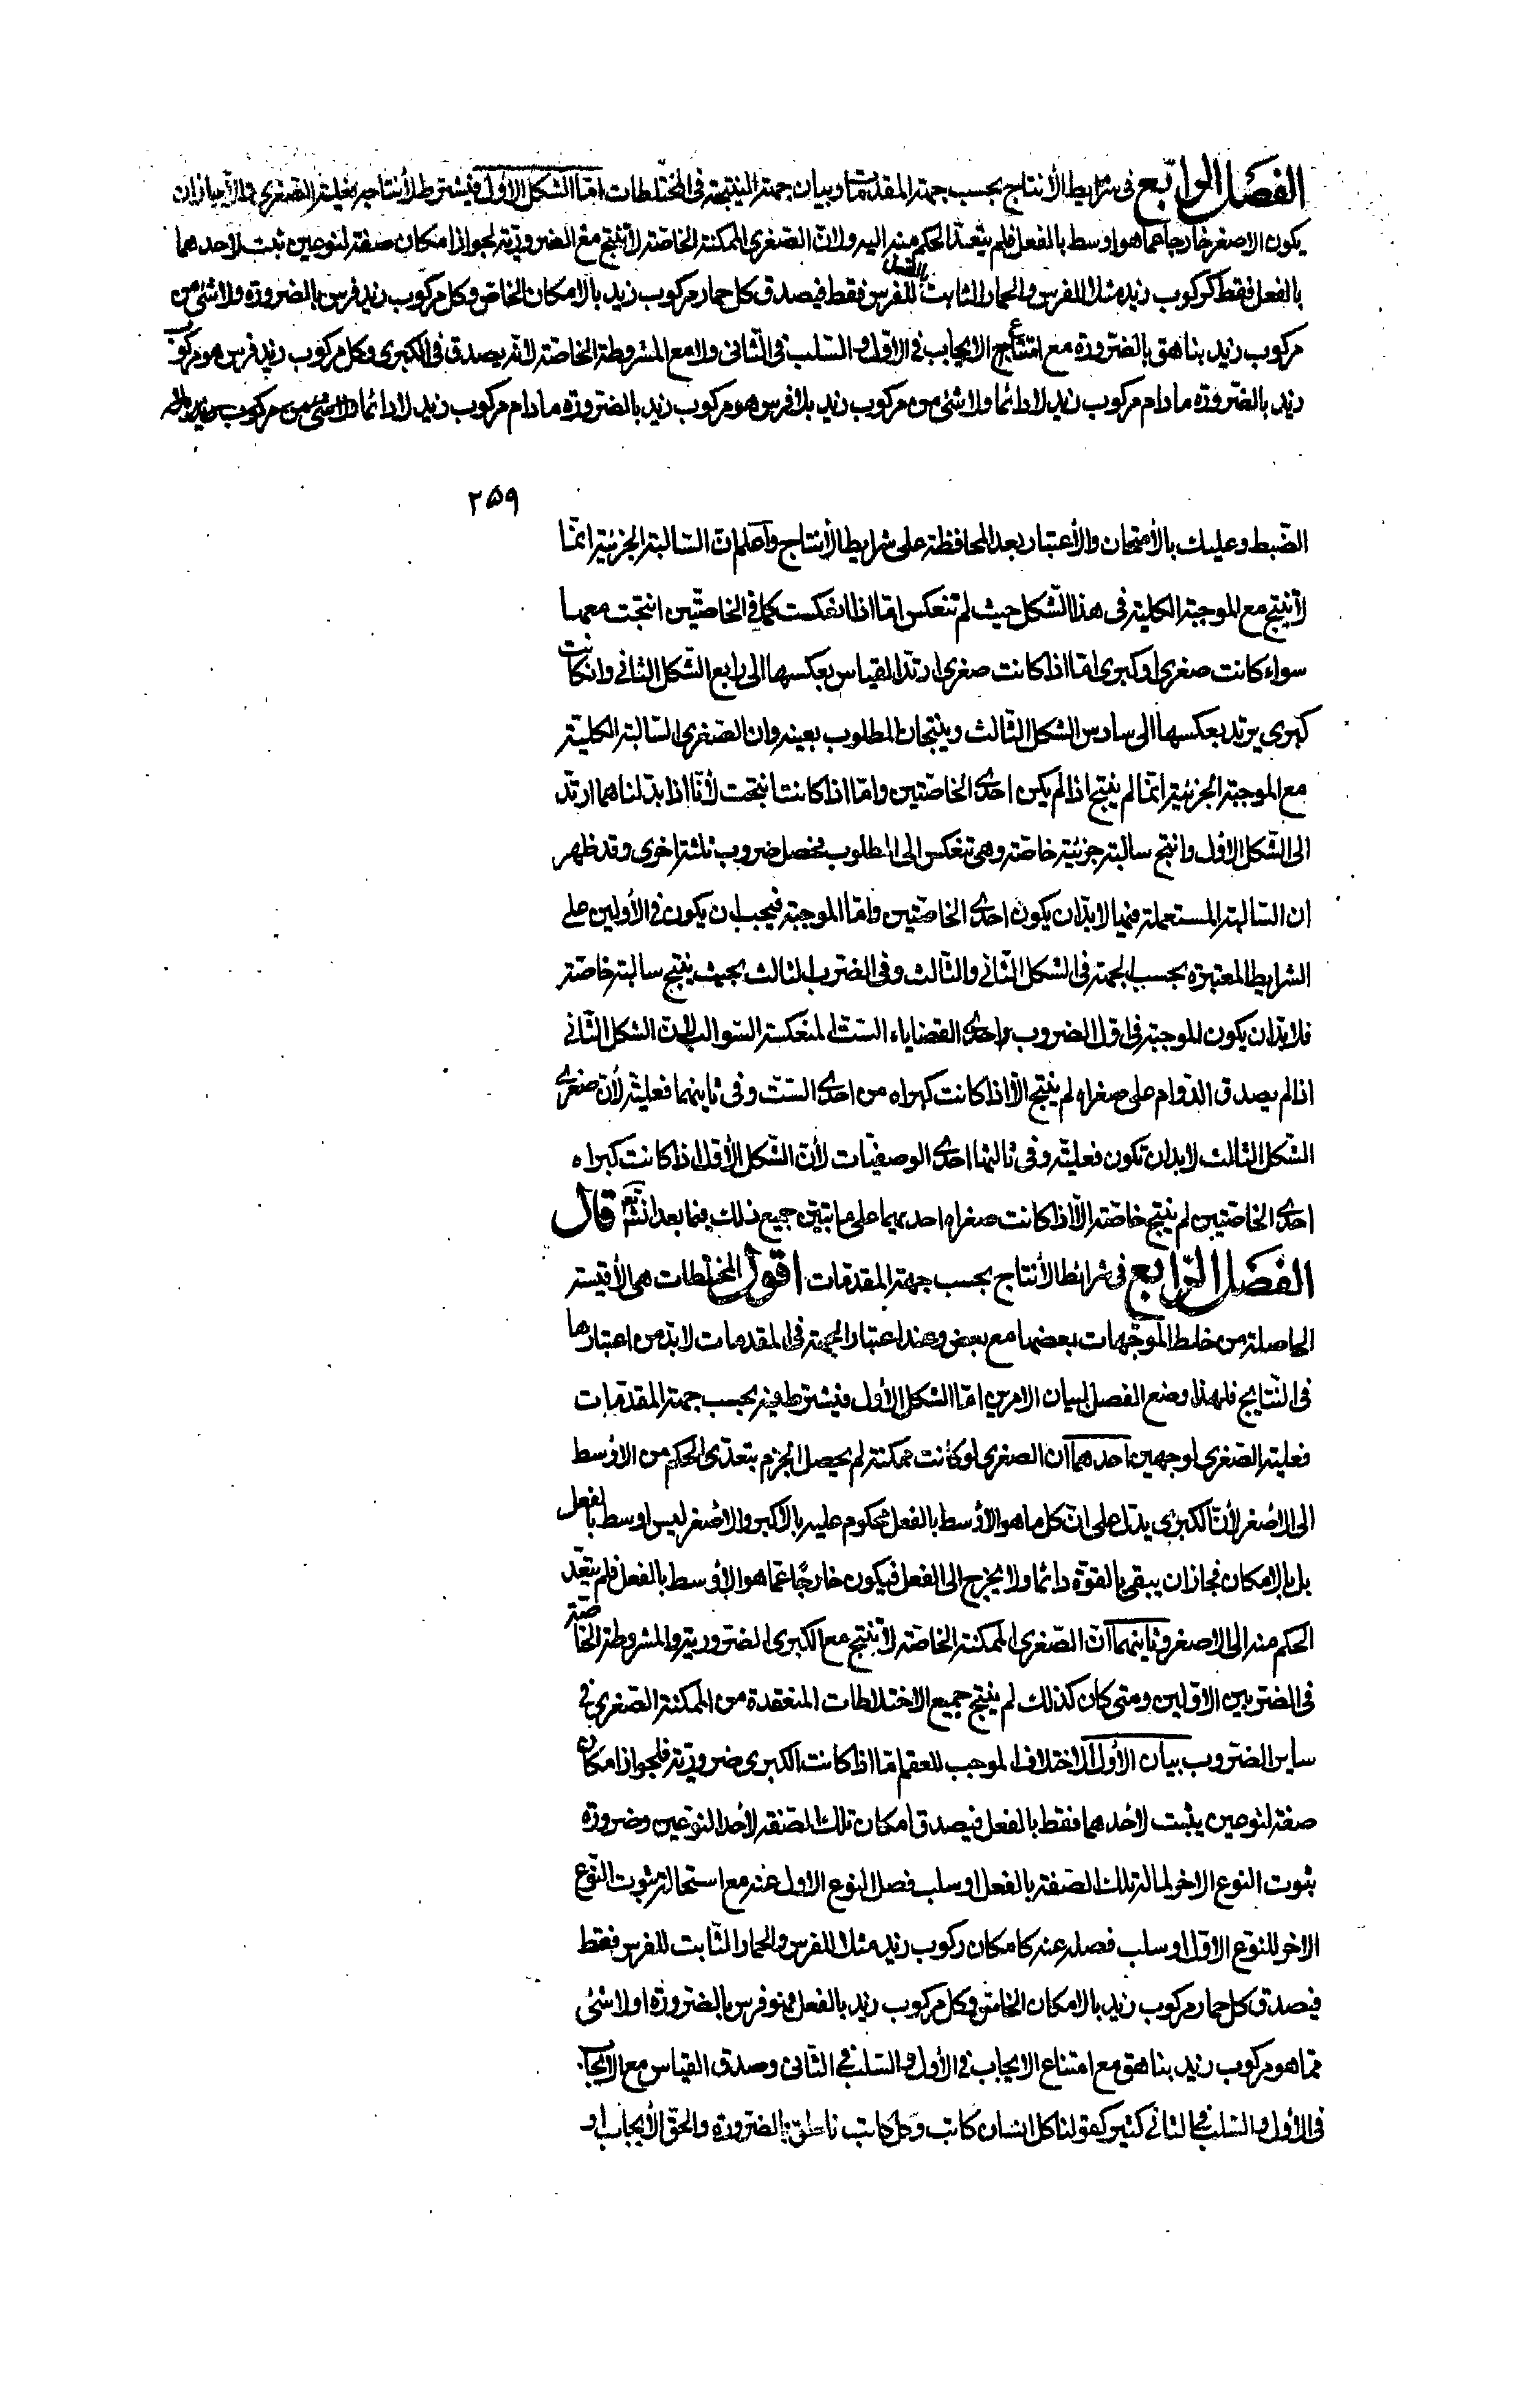 الفصل الرابع فى شرايط الأنتاج بحسب جهة المقدمات وبيان جهة النتيجة فى المختلطات امّا الشكل الأول فيشترط لأنتاجه فعلية الصغرى والّا لجاز ان
يكون الاصغر خارجا عما هو اوسط بالفعل فلم يتعدّ الحكم منه اليه ولانّ الصغرى الممكنة الخاصّة لا تنتج مع الضروريّة لجواز امكان صفة لنوعين تثبت لاحدهما
بالفعل فقط كركوب زيد مثلا للفرس والحمار الثابت بالفعل للفرس فقط فيصدق كل حمار مركوب زيد بالامكان الخاص وكل مركوب زيد فرس بالضرورة ولا شئ من
مركوب زيد بناهق بالضرورة مع امتناع الايجاب فى الاوّل والسّلب فى الثانى ولا مع المشروطة الخاصّة لانّه يصدق فى الكبرى وكل مركوب زيد فرس هو مركوب
زيد بالضرورة ما دام مركوب زيد لا دائما ولا شئ من مركوب زيد بلا فرس هو مركوب زيد بالضرورة ما دام مركوب زيد لا دائما ولا شئ من مركوب زيد
٢٥٩
الضّبط وعليك بالأمتحان والأعتبار بعد المحافظة على شرايط الأنتاج واعلم انّ السّالبة الجزئية انّما
لا تنتج مع الموجبة الكلية فى هذا الشّكل حيث لم تنعكس امّا اذا انعكست كما فى الخاصّتين انتجت معها
سواء كانت صغرى او كبرى امّا اذا كانت صغرى ارتدّ القياس بعكسها الى رابع الشّكل الثانى وان كانت
كبرى يرتد بعكسها الى سادس الشكل الثّالث وينتجان المطلوب بعينه وان الصغرى السّالبة الكليّة
مع الموجبة الجزئية انّما لم ينتج اذا لم يكن احدى الخاصّتين وامّا اذا كانت انتجت لأنّا اذا بدّلناهما ارتدّ
الى الشّكل الأوّل وانتج سالبة جزئية خاصّة وهى تنعكس الى المطلوب فحصل ضروب ثلثة اخرى وقد ظهر
ان السّالبة المستعملة فيها لا بدّ ان يكون احدى الخاصّتين وامّا الموجبة فيجب ان يكون فى الأولين على
الشرايط المعتبرة بحسب الجهة فى الشكل الثّانى والثّالث وفى الضرب الثالث بحيث ينتج سالبة خاصّة
فلا بدّ ان يكون الموجبة فى اوّل الضروب احدى القضاياء الستّ المنعكسة السّوالب لأنّ الشكل الثّانى
اذا لم يصدق الدّوام على صغراه لم ينتج الّا اذا كانت كبراه من احدى السّتّ وفى ثانيهما فعليّة لأنّ صغرى
الشّكل الثالث لا بد ان تكون فعليّة وفى ثالثها احدى الوصفيّات لأنّ الشّكل الأوّل اذا كانت كبراه
احدى الخاصّتين لم ينتج خاصّة الّا اذا كانت صغراه احديهما على ما تبيّن جميع ذلك فيما بعد انشاء الله قال
الفصل الرّابع فى شرائط الأنتاج بحسب جهة المقدّمات اقول المختلطات هى الأقيسة
الحاصلة من خلط الموجّهات بعضها مع بعض وعند اعتبار الجهة فى المقدمات لا بدّ من اعتبارها
فى النّتايج فلهذا وضع الفصل لبيان الامرين امّا الشكل الأول فيشترط فيه بحسب جهة المقدّمات
فعلية الصّغرى لوجهين احدهما ان الصغرى لو كانت ممكنة لم يحصل الجزم بتعدّى الحكم من الاوسط
الى الأصغر لأنّ الكبرى يدلّ على انّ كل ما هو الأوسط بالفعل محكوم عليه بالأكبر والأصغر ليس اوسط بالفعل
بل بالإمكان فجاز ان يبقى بالقوّة دائما ولا يخرج الى الفعل فيكون خارجًا عمّا هو الأوسط بالفعل فلم يتعدّ
الحكم منه الى الاصغر وثانيهما انّ الصّغرى الممكنة الخاصّة لا تنتج مع الكبرى الضّرورية والمشروطة الخاصّة
فى الضّربين الاوّلين ومتى كان كذلك لم ينتج جميع الاختلاطات المنعقدة من الممكنة الصّغرى فى
ساير الضروب بيان الأول الاختلاف الموجب للعقم امّا اذا كانت الكبرى ضروريّة فلجواز امكان
صفة لنوعين يثبت لأحدهما فقط بالفعل فيصدق امكان تلك الصّفة لأحد النوعين وضرورة
ثبوت النوع الاخر لما له تلك الصّفة بالفعل او سلب فصل النوع الاول عنه مع استحالة ثبوت النّوع
الاخر للنوّع الاوّل او سلب فصله عنه كامكان ركوب زيد مثلا للفرس والحمار الثّابت للفرس فقط
فيصدق كل حمار مركوب زيد بالامكان الخاصّ وكل مركوب زيد بالفعل فهو فرس بالضّرورة او لا شئ
ممّا هو مركوب زيد بناهق مع امتناع الايجاب فى الأول والسّلب فى الثّانى وصدق القياس مع الأيجاب
فى الأول والسّلب فى الثانى كثير كقولنا كل انسان كاتب وكل كاتب ناطق بالضرورة والحقّ الأيجاب او